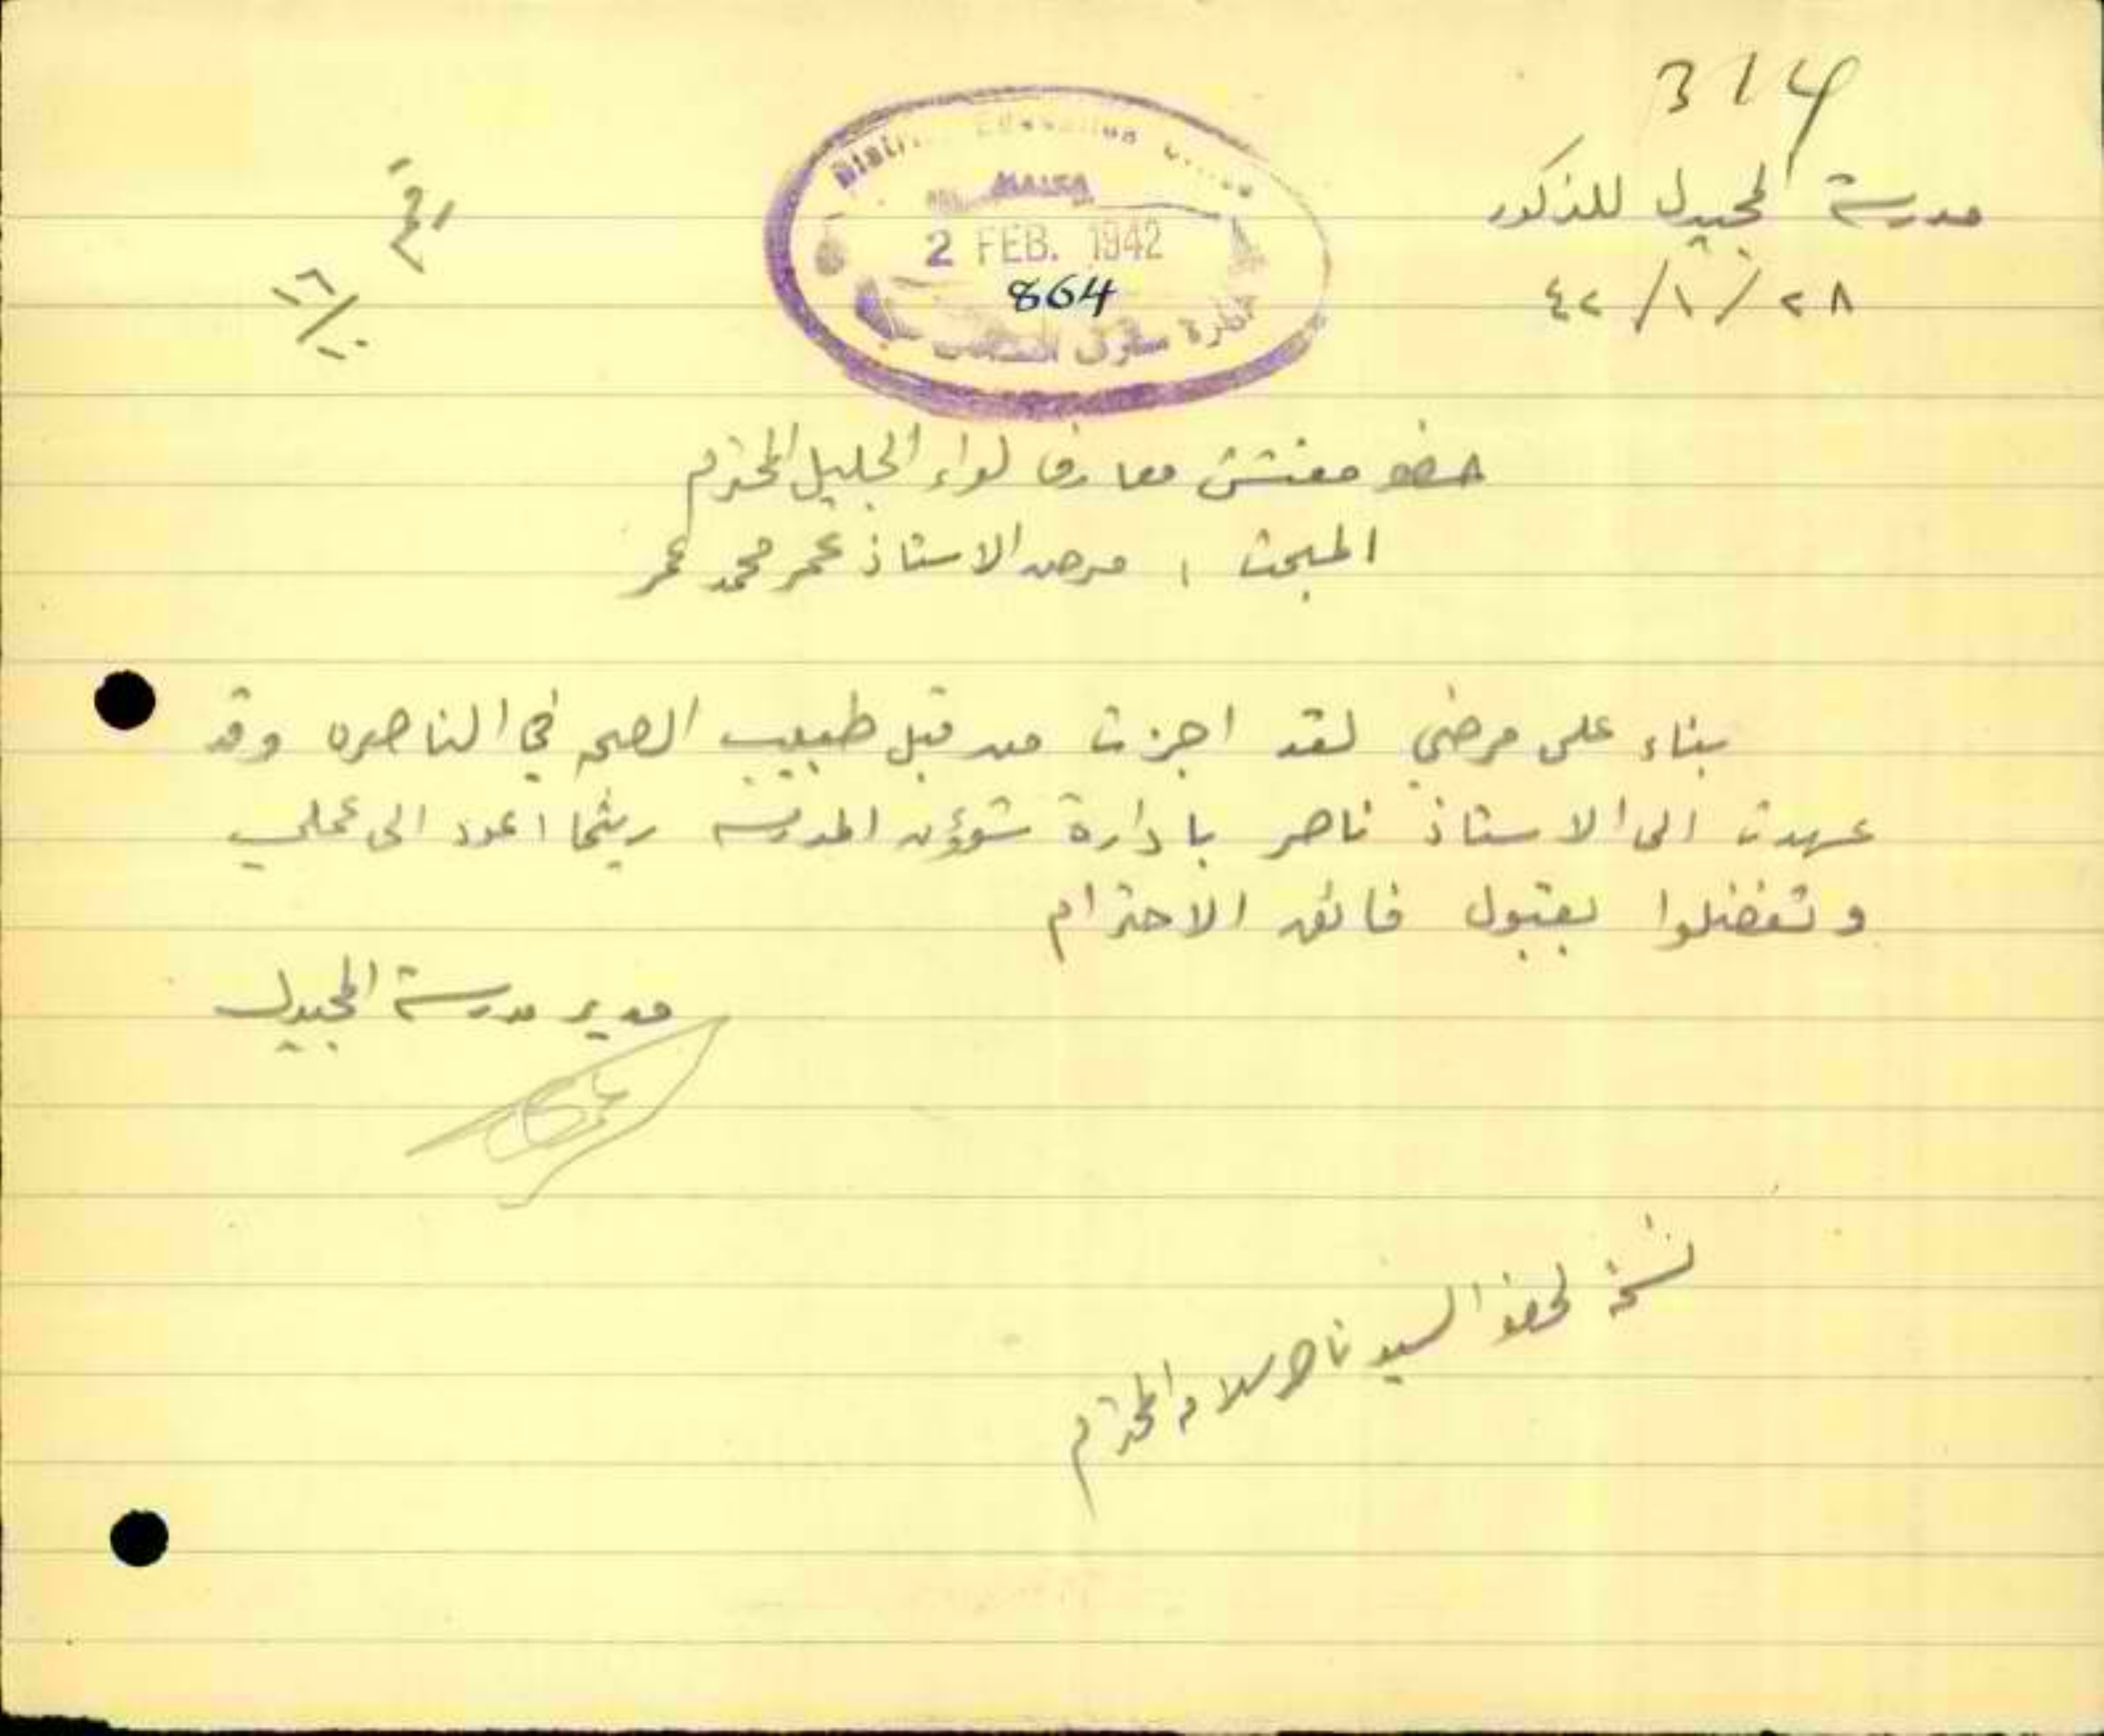 314
مدرسة المجيدل للذكور
٢٨/١/٤٢
رقم
١٦/١٠
District Education Office
HAIFA
2 FEB. 1942
864
حضرة مفتش معارف لواء الجليل المحترم
المبحث : مرض الاستاذ عمر محمد عمر
بناء على مرضي لقد اجزت من قبل طبيب الصحه في الناصره وقد
عهدت الى الاستاذ ناصر بادارة شؤون المدرسه ريثما اعود الى عملي
وتفضلوا بقبول فائق الاحترام
مدير مدرسة المجيدل
نسخة لحضرة السيد ناصر سلام المحترم